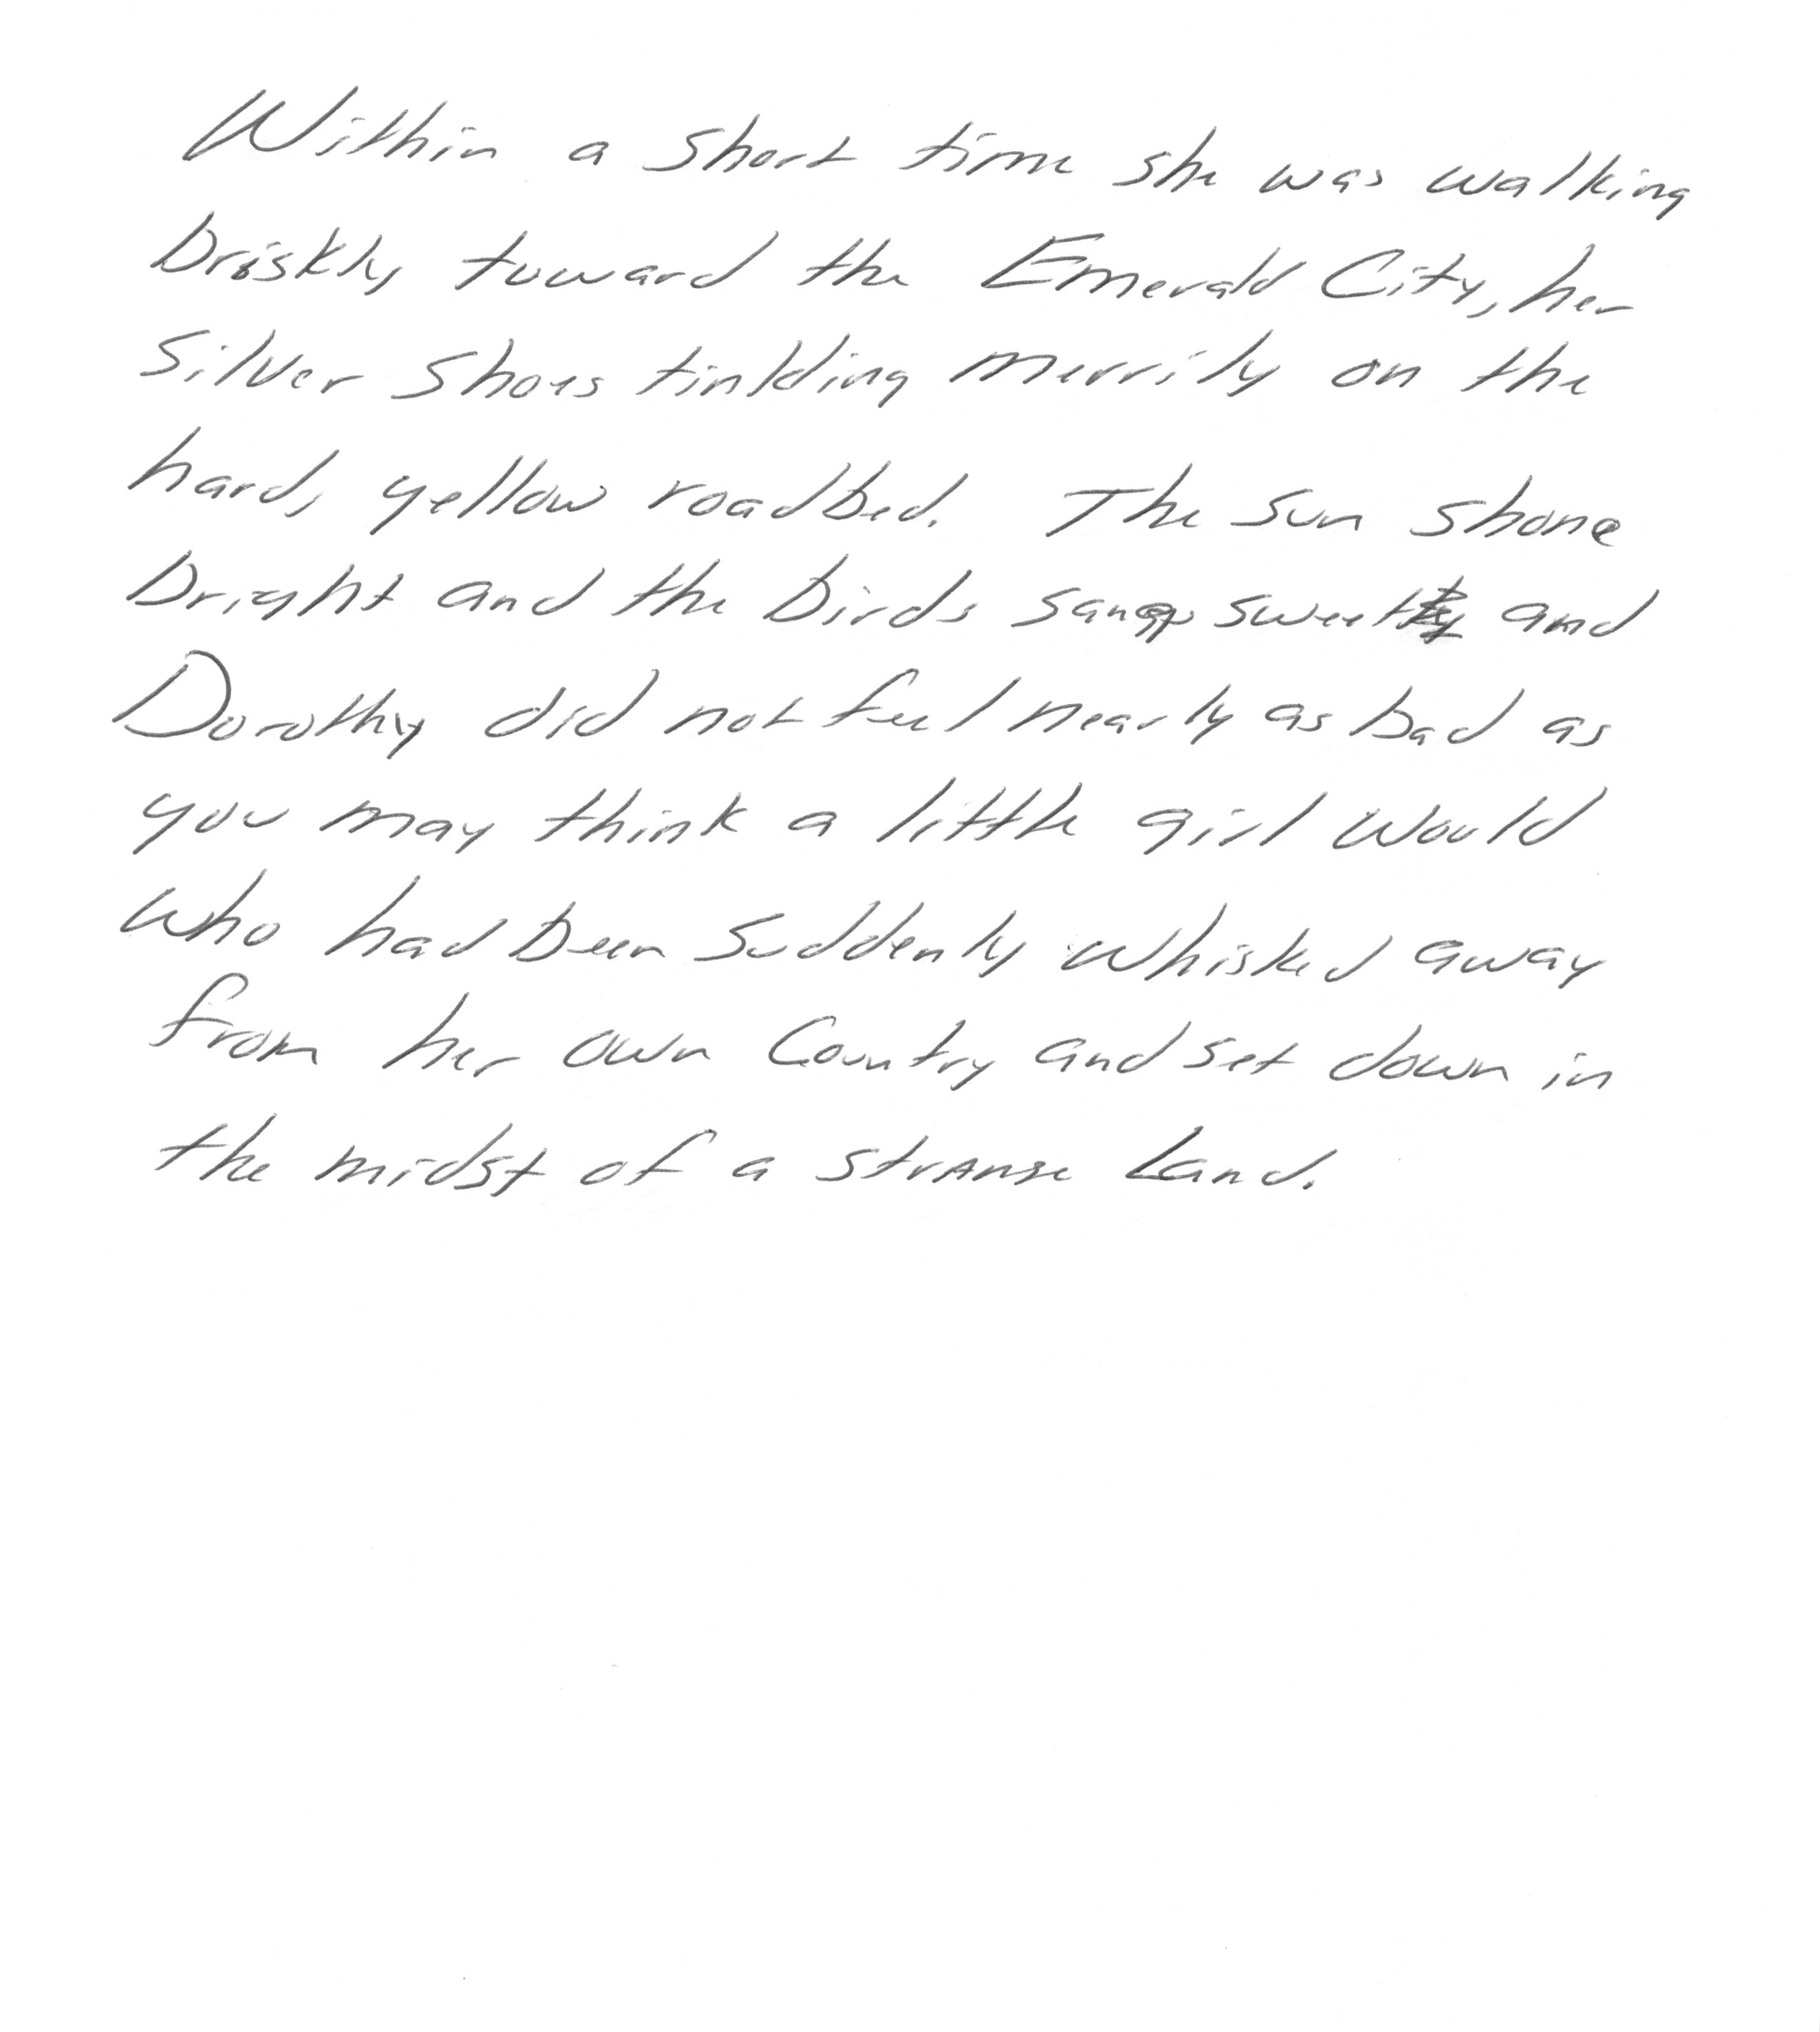 Within a short time she was walking
briskly toward the Emerald City, her
Silver Shoes tinkling merrily on the
hard, yellow roadbed. The sun shone
bright and the birds sang sweetly and
Dorothy did not feel nearly as bad as
you may think a little girl would
who had been suddenly whisked away
from her own Country and set down in
the midst of a strange Land.